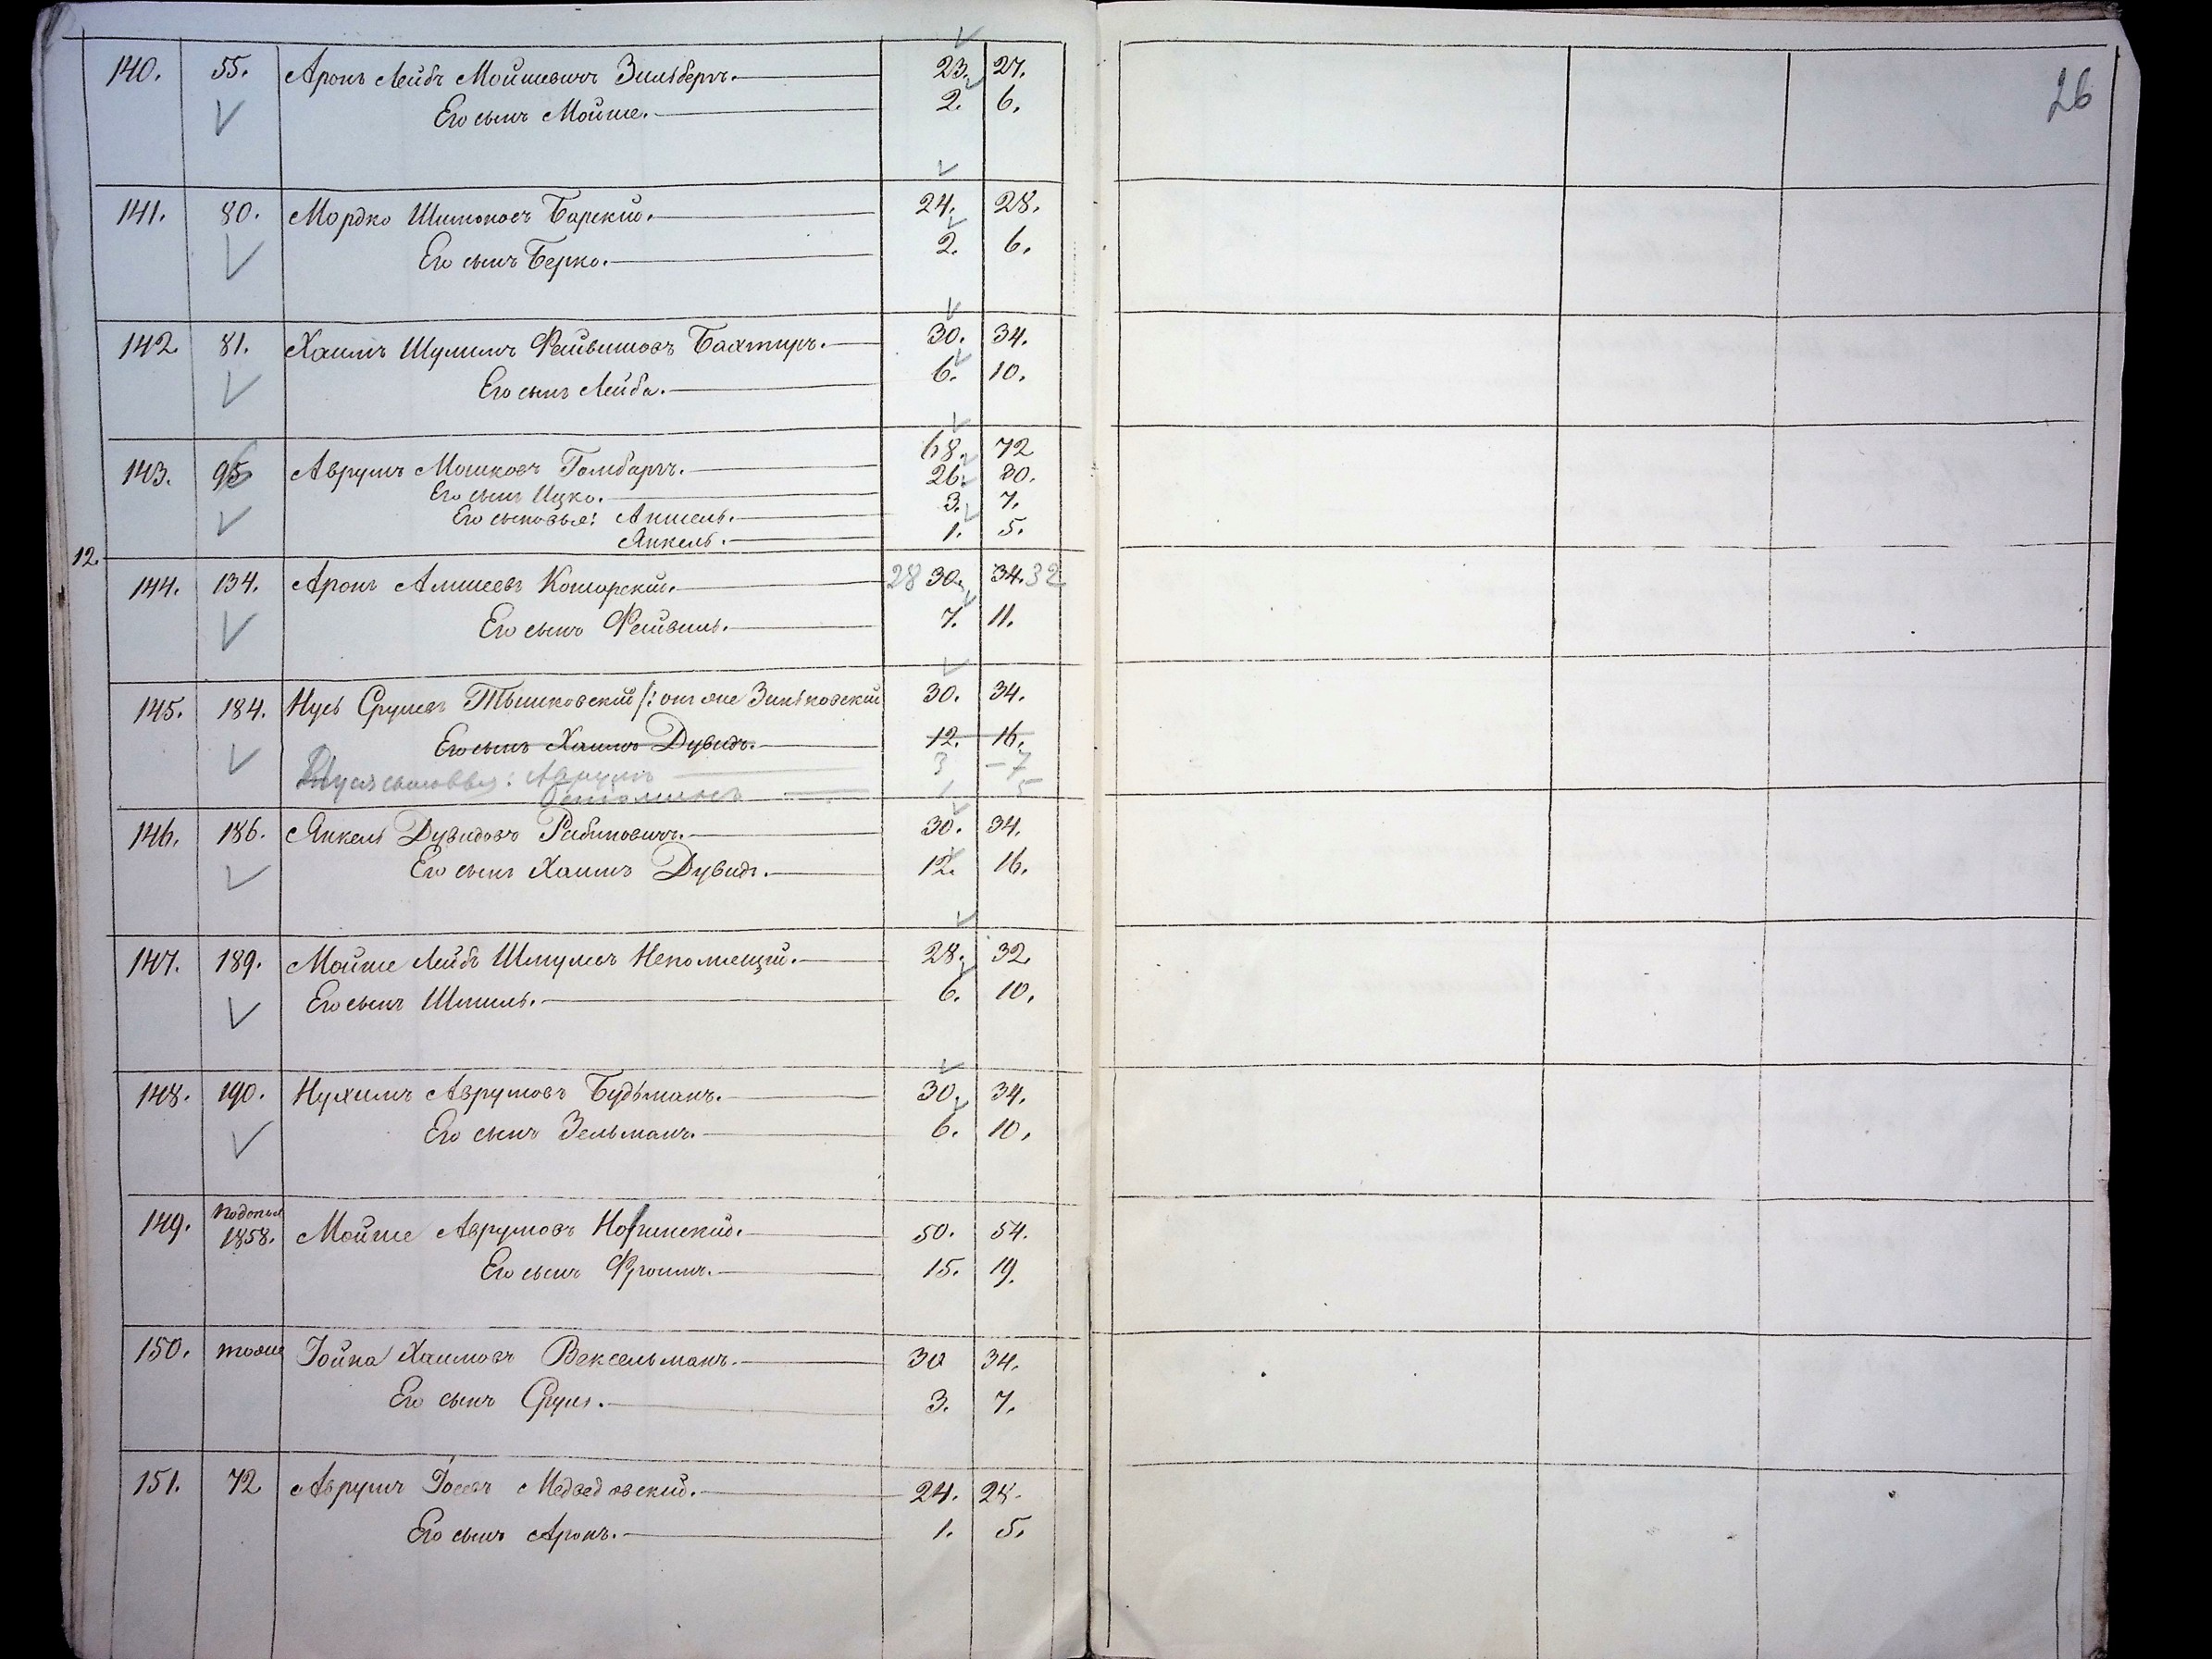 26
140. 55. Аронъ Лейбъ Мойшевичъ Зильберъ. 23. 27.
Его сынъ Мойше. 2. 6.
141. 80. Мордко Шимоновъ Барский. 24. 28.
Его сынъ Берко. 2. 6.
142. 81. Хаимъ Шулимъ Фейвишовъ Бахтиръ. 30. 34.
Его сынъ Лейба. 6. 10.
143. 95 Аврумъ Мошковъ Гомбаръ. 68. 72
Его сынъ Ицко. 26. 30.
Его сыновья: Аншель. 3. 7.
Янкель. 1. 5.
12.
144. 134. Аронъ Алишеевъ Коморский. 28 30. 34. 32
Его сынъ Фейвиль. 7. 11.
145. 184. Нусь Срулевъ Тышковский /: онъ же Зиньковский 30. 34.
Его сынъ Хаимъ Дувидъ. 12. 16.
Нуся сыновья: Аврумъ 3 7
1 5
146. 186. Янкель Дувидовъ Рабиновичъ. 30. 34.
Его сынъ Хаимъ Дувидъ. 12. 16.
147. 189. Мойше Лейбъ Шмулевъ Непомнещий. 28. 32.
Его сынъ Шмиль. 6. 10.
148. 190. Нухимъ Аврумовъ Будьманъ. 30. 34.
Его сынъ Зельманъ. 6. 10.
149. 1858. Мойше Аврумовъ Новинский. 50. 54.
Его сынъ Фроимъ. 15. 19.
150. тоже Іойна Хаимовъ Вексельманъ. 30 34.
Его сынъ Сруль. 3. 7.
151. 72 Аврумъ Іосевъ Медведовский. 24. 28.
Его сынъ Аронъ. 1. 5.